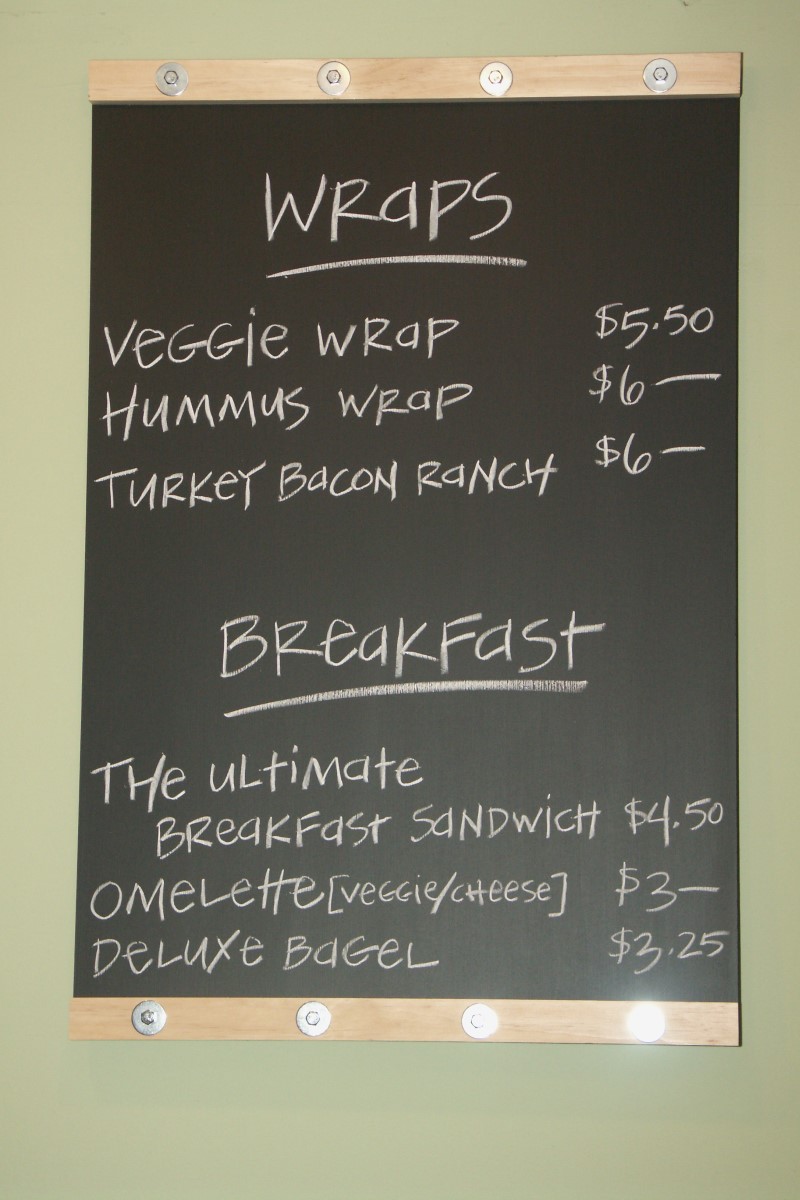 WRaPS
VeGGie WRaP $5.50
HUMMUS WRaP $6—
TURKeY BaCON RaNCH $6—
BReaKFaSt
THe ULtiMate
BReaKFaSt SaNDWiCH $4.50
OMeLette [VeGGie/CHeeSe] $3—
DeLUXe BaGeL $3.25